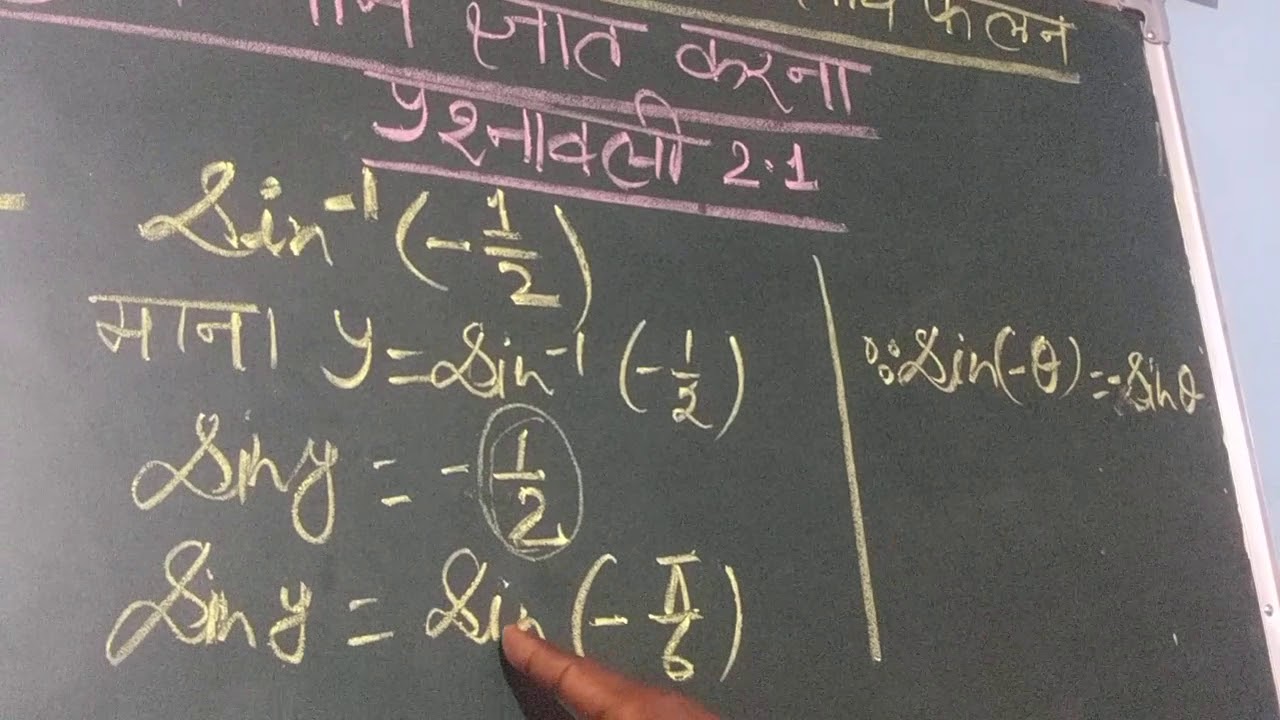 फलन
ज्ञात करना
प्रश्नावली 2.1
Sin⁻¹ (-1/2)
माना y = Sin⁻¹ (-1/2)
∵ Sin(-θ) = -Sinθ
Sin y = -1/2
Sin y = Sin (-π/6)